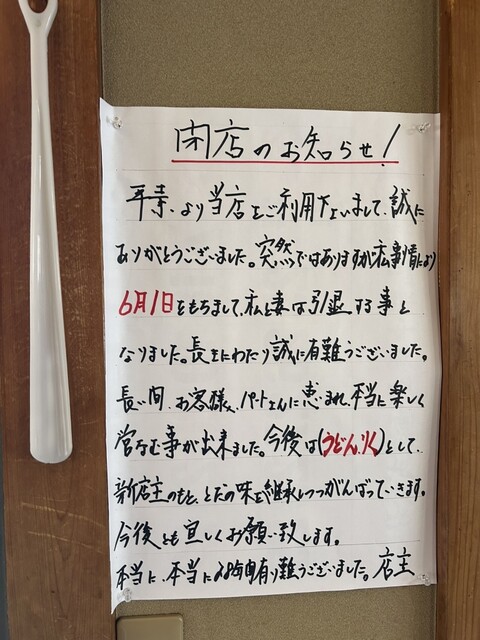 閉店のお知らせ!
平素より当店をご利用下さいまして、誠に
ありがとうございました。突然ではありますが私事情により
6月1日をもちまして、私と妻は引退する事と
なりました。長きにわたり誠に有難うございました。
長い間、お客様、パートさんに恵まれ、本当に楽しく
営なむ事が出来ました。今後は(うどん、りく)として、
新店主のもと、とだの味を継承しつつがんばっていきます。
今後とも宜しくお願い致します。
本当に、本当に28年間有り難うございました。店主